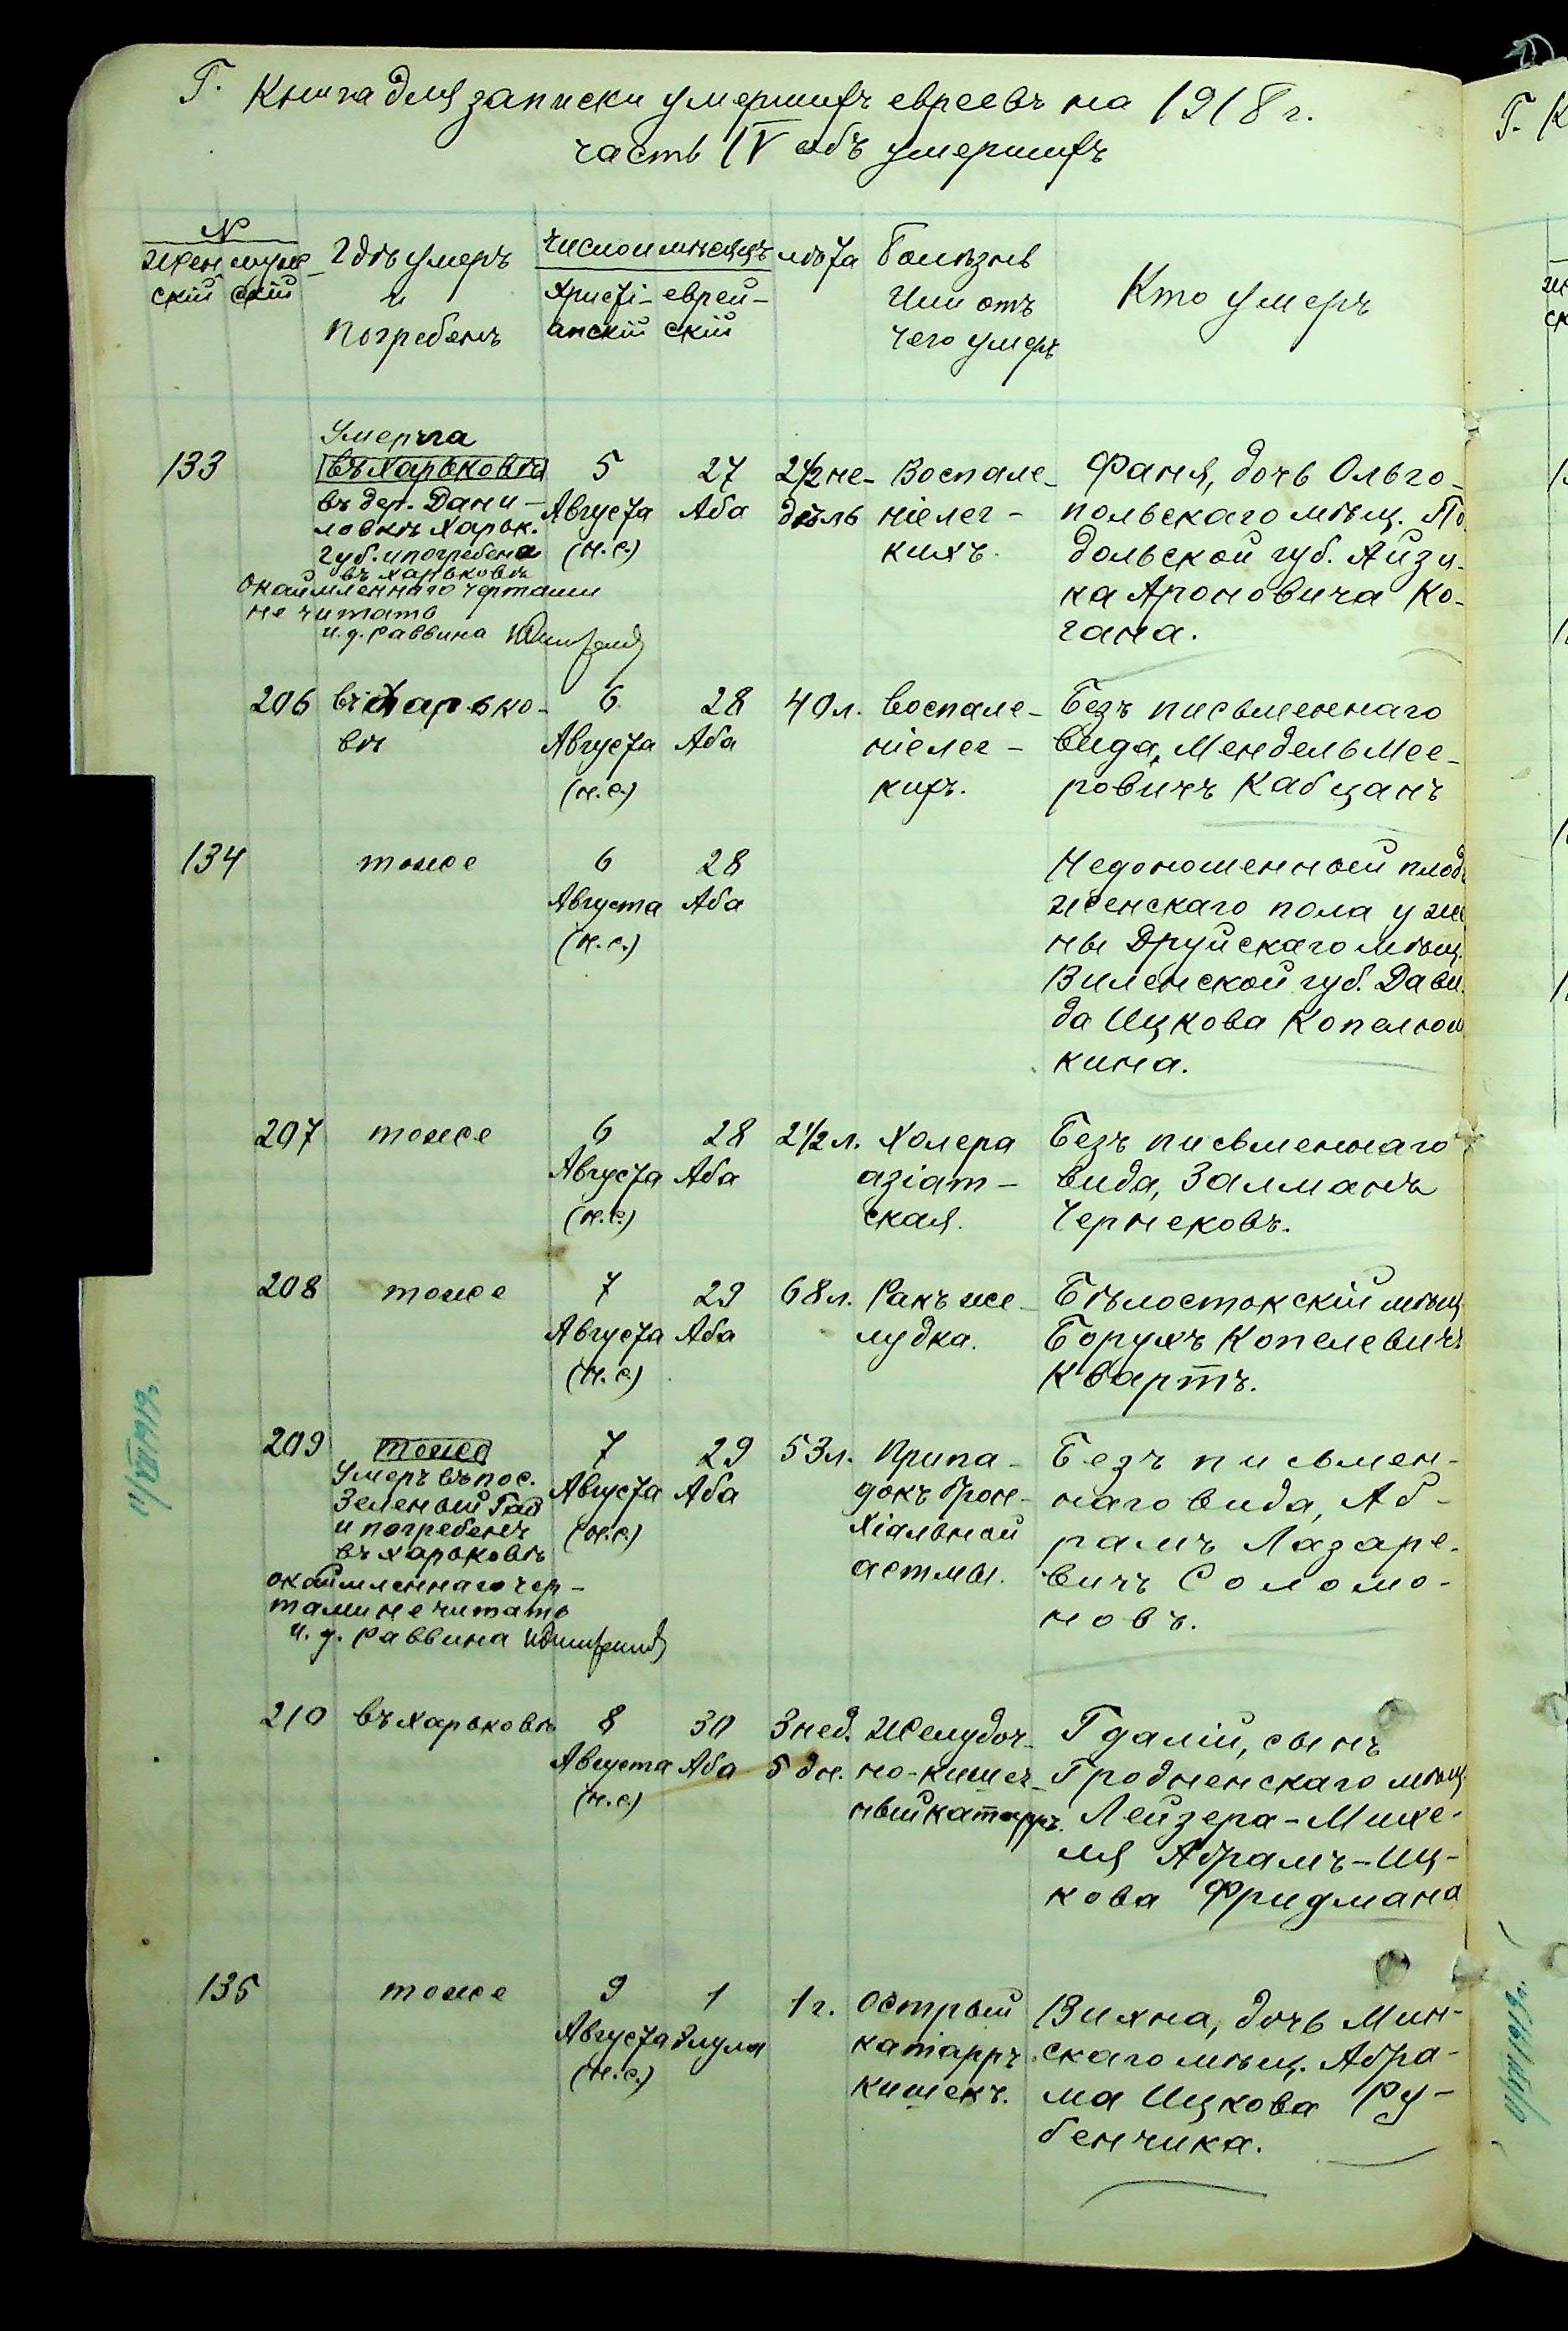 Г. Книга для записки умершихъ евреевъ на 1918 г.
часть IV объ умершихъ
№
Жен- муж-
скій скій
Гдѣ умеръ
и
погребенъ
число и мѣсяцъ
Христі- еврей-
анскій скій
лѣта
Болѣзнь
или отъ
чего умеръ
Кто умеръ
133
Умерла
въ Харьковѣ
въ дер. Дани-
ловкѣ Харьк.
губ. и погребена
въ Харьковѣ
окаймленнаго чертами
не читать
и. д. раввина
5
Августа
(н.с.)
27
Аба
2 1/2 не-
дѣль
Воспале-
ніе лег-
кихъ.
Фаня, дочь Ольго-
польскаго мѣщ. По-
дольской губ. Айзи-
ка Ароновича Ко-
гана.
206
въ Харько-
вѣ
6
Августа
(н.с.)
28
Аба
40 л.
Воспале-
ніе лег-
кихъ.
Безъ письменнаго
вида, Мендель Мее-
ровичъ Кабцанъ
134
тоже
6
Августа
(н.с.)
28
Аба
Недоношенный плодъ
женскаго пола у же
ны Друйскаго мѣщ.
Виленской губ. Дави-
да Ицкова Копелюш
кина.
207
тоже
6
Августа
(н.с.)
28
Аба
2 1/2 л.
Холера
азіат-
ская.
Безъ письменнаго
вида, Залманъ
Чернековъ.
208
тоже
7
Августа
(н.с.)
29
Аба
68 л.
Ракъ же-
лудка.
Бѣлостокскій мѣщ.
Борухъ Копелевичъ
Квартъ.
209
тоже
Умеръ въ пос.
Зеленый Гай
и погребенъ
въ Харьковѣ
окаймленнаго чер-
тами не читать
и. д. раввина
7
Августа
(н.с.)
29
Аба
53 л.
Припа-
докъ брон-
хіальной
астмы.
Безъ письмен-
наго вида, Аб-
рамъ Лазаре-
вичъ Соломо-
новъ.
210
въ Харьковѣ
8
Августа
(н.с.)
30
Аба
3 нед.
5 дн.
Желудоч-
но-кишеч-
ный катарръ.
Гдалій, сынъ
Гродненскаго мѣщ.
Лейзера-Михе-
ля Абрамъ-Иц-
кова Фридмана
135
тоже
9
Августа
(н.с.)
1
Элула
1 г.
Острый
катарръ
кишекъ.
Вихна, дочь Мин-
скаго мѣщ. Абра-
ма Ицкова Ру-
бенчика.
11/VII 1919г.
Г. К